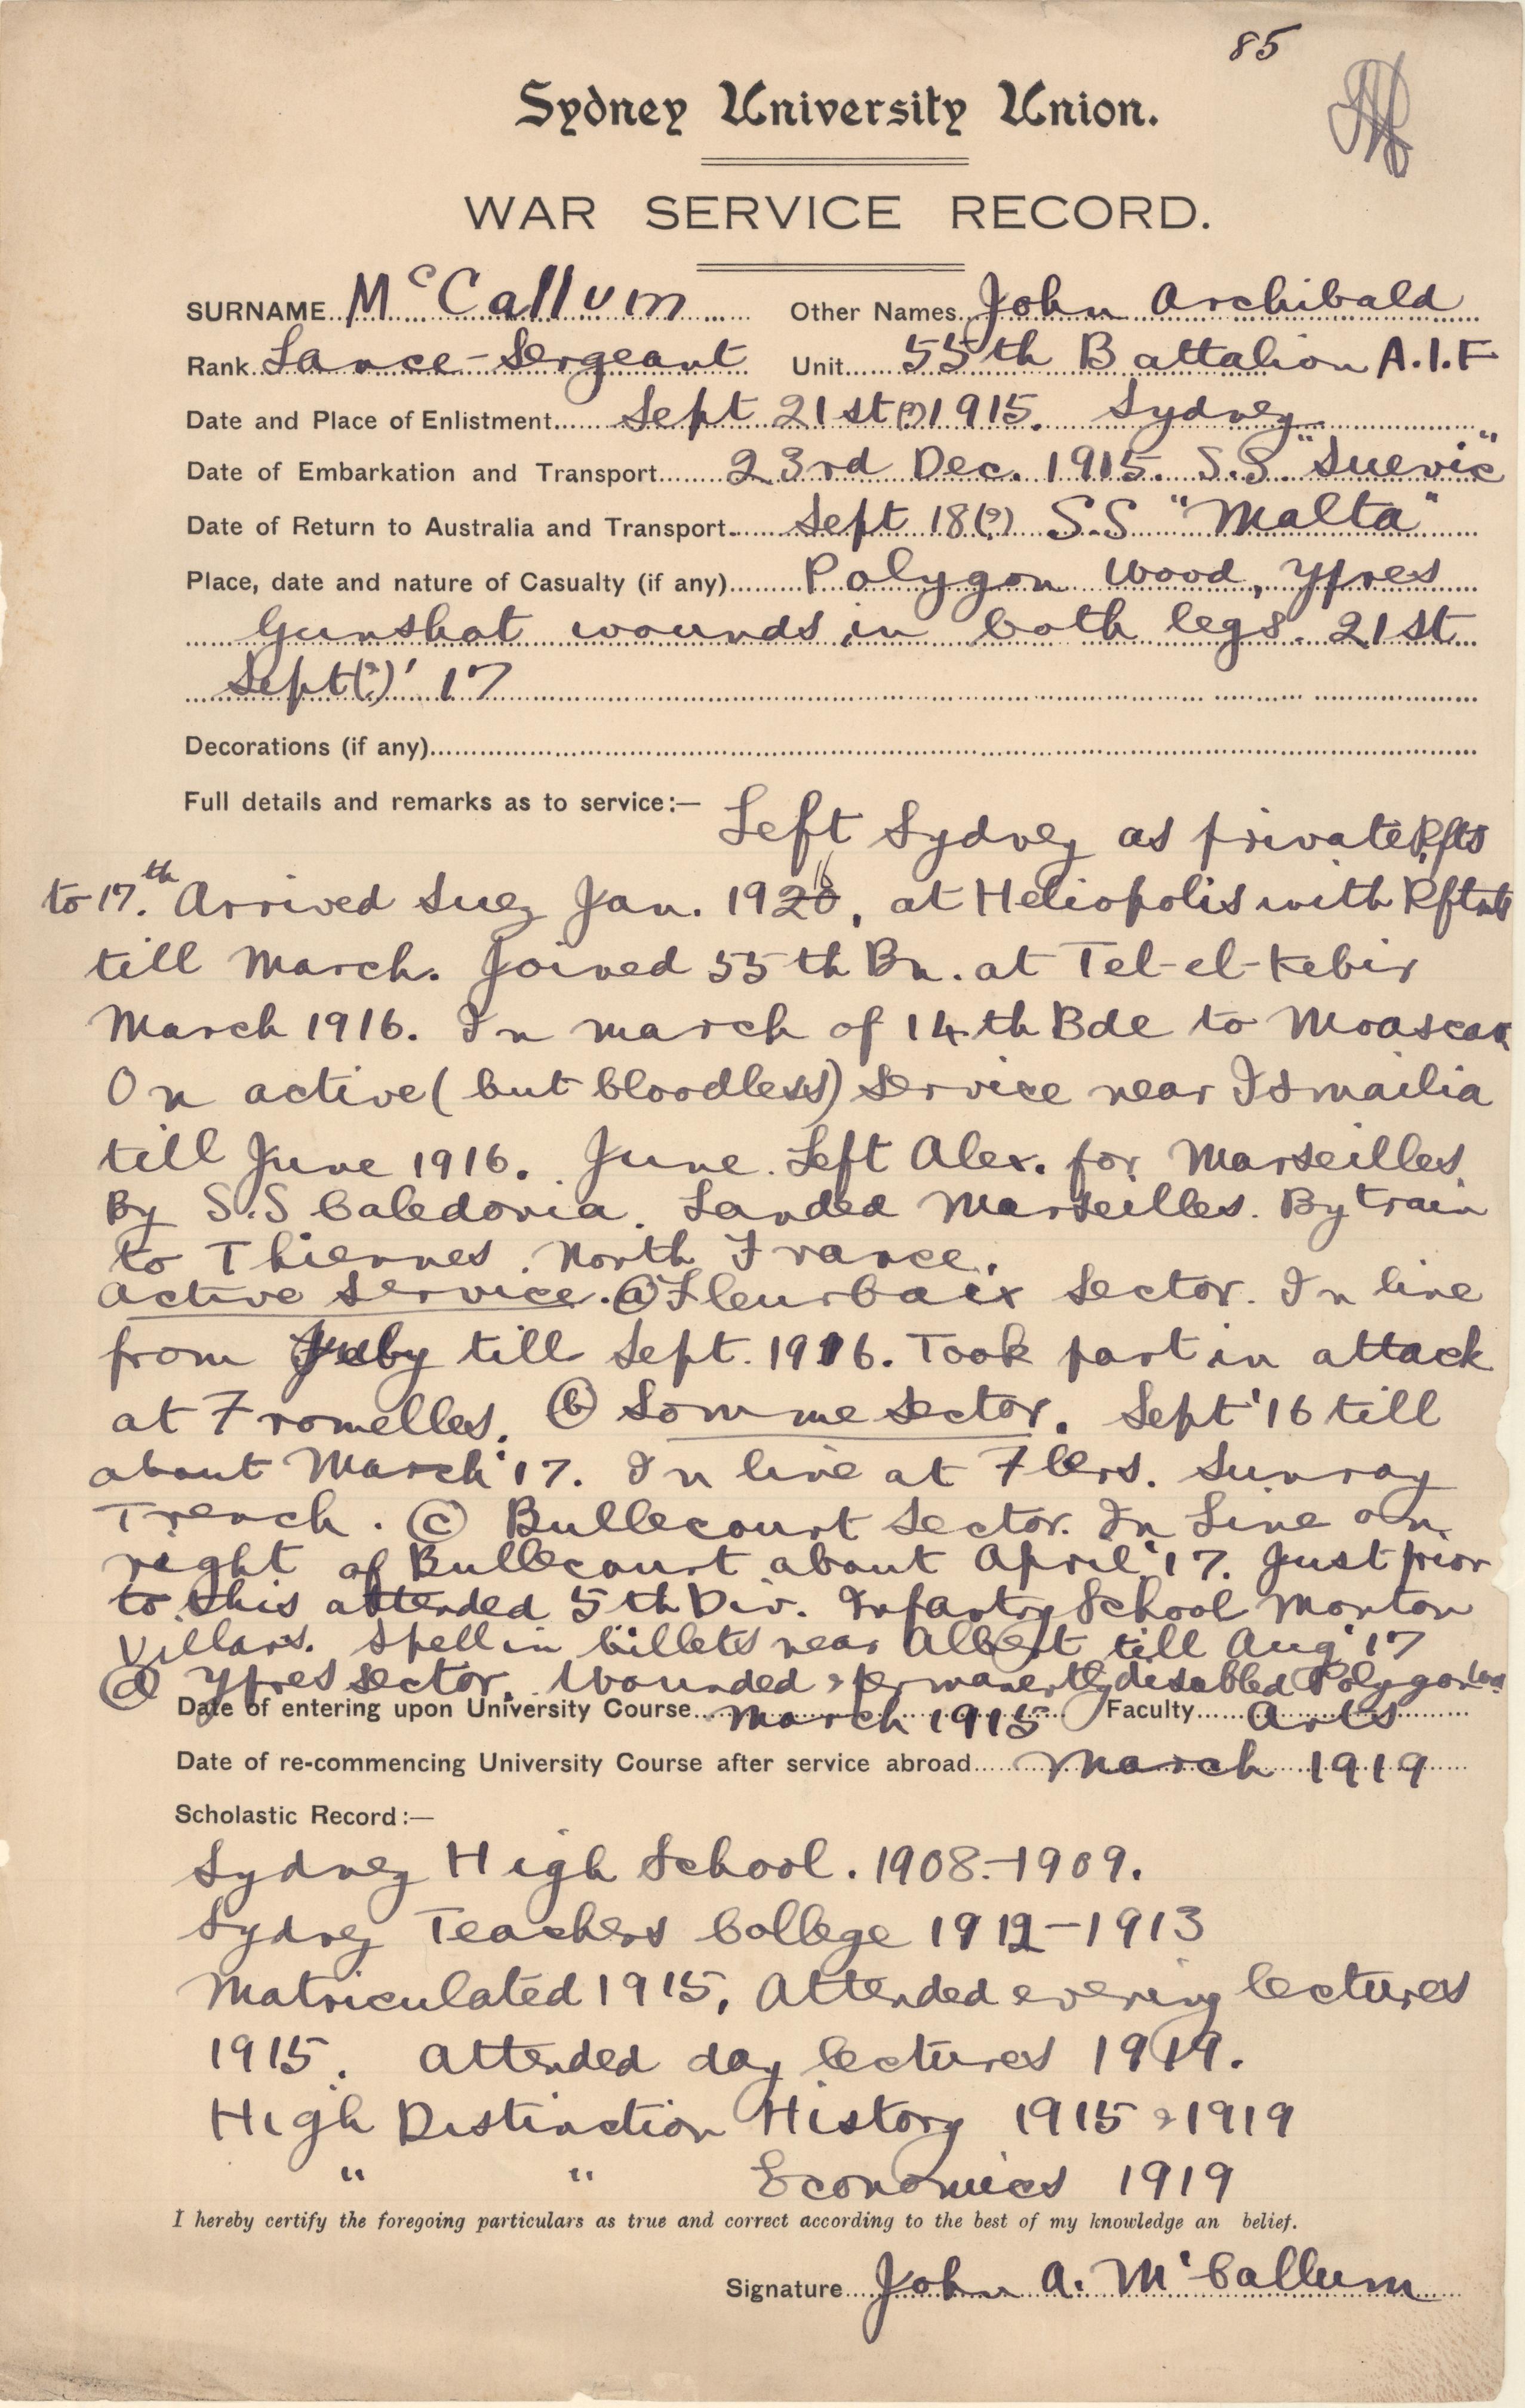 85
Sydney University Union.
WAR SERVICE RECORD.
SURNAME McCallum Other Names John Archibald
Rank Lance-Sergeant Unit 55th Battalion A.I.F
Date and Place of Enlistment Sept 21st(?)1915. Sydney
Date of Embarkation and Transport 23rd Dec. 1915. S.S. "Suevic"
Date of Return to Australia and Transport Sept 18(?) S.S "Malta"
Place, date and nature of Casualty (if any) Polygon Wood, Ypres
Gunshot wounds in both legs. 21st
Sept(?)' 17
Decorations (if any)
Full details and remarks as to service:— Left Sydney as private Rfts
to 17.th Arrived Suez Jan. 1916, at Heliopolis with
till March. Joined 55th Bn. at Tel-el-Kebir
March 1916. In march of 14th Bde to Moascar
On active (but bloodless) service near Ismailia
till June 1916. June. Left Alex. for Marseilles
By S.S Caledonia. Landed Marseilles. By train
to Thiennes. North France.
Active Service. (a) Fleurbaix Sector. In line
from July till Sept. 1916. Took part in attack
at Fromelles. (b) Somme Sector. Sept '16 till
about March '17. In line at Flers. Sunray
Trench. (c) Bullecourt Sector. In Line on
right of Bullecourt about April '17. Just prior
to this attended 5th Div. Infantry School Monton
Villars. Spell in billets near Albert till Aug '17
(d) Ypres Sector. Wounded & permanently disabled Polygon
Date of entering upon University Course March 1915 Faculty Arts
Date of re-commencing University Course after service abroad March 1919
Scholastic Record:—
Sydney High School. 1908-1909.
Sydney Teachers College 1912-1913
Matriculated 1915, Attended evening lectures
1915. Attended day lectures 1919.
High Distinction History 1915 & 1919
" " Economics 1919
I hereby certify the foregoing particulars as true and correct according to the best of my knowledge an belief.
Signature John A. McCallum